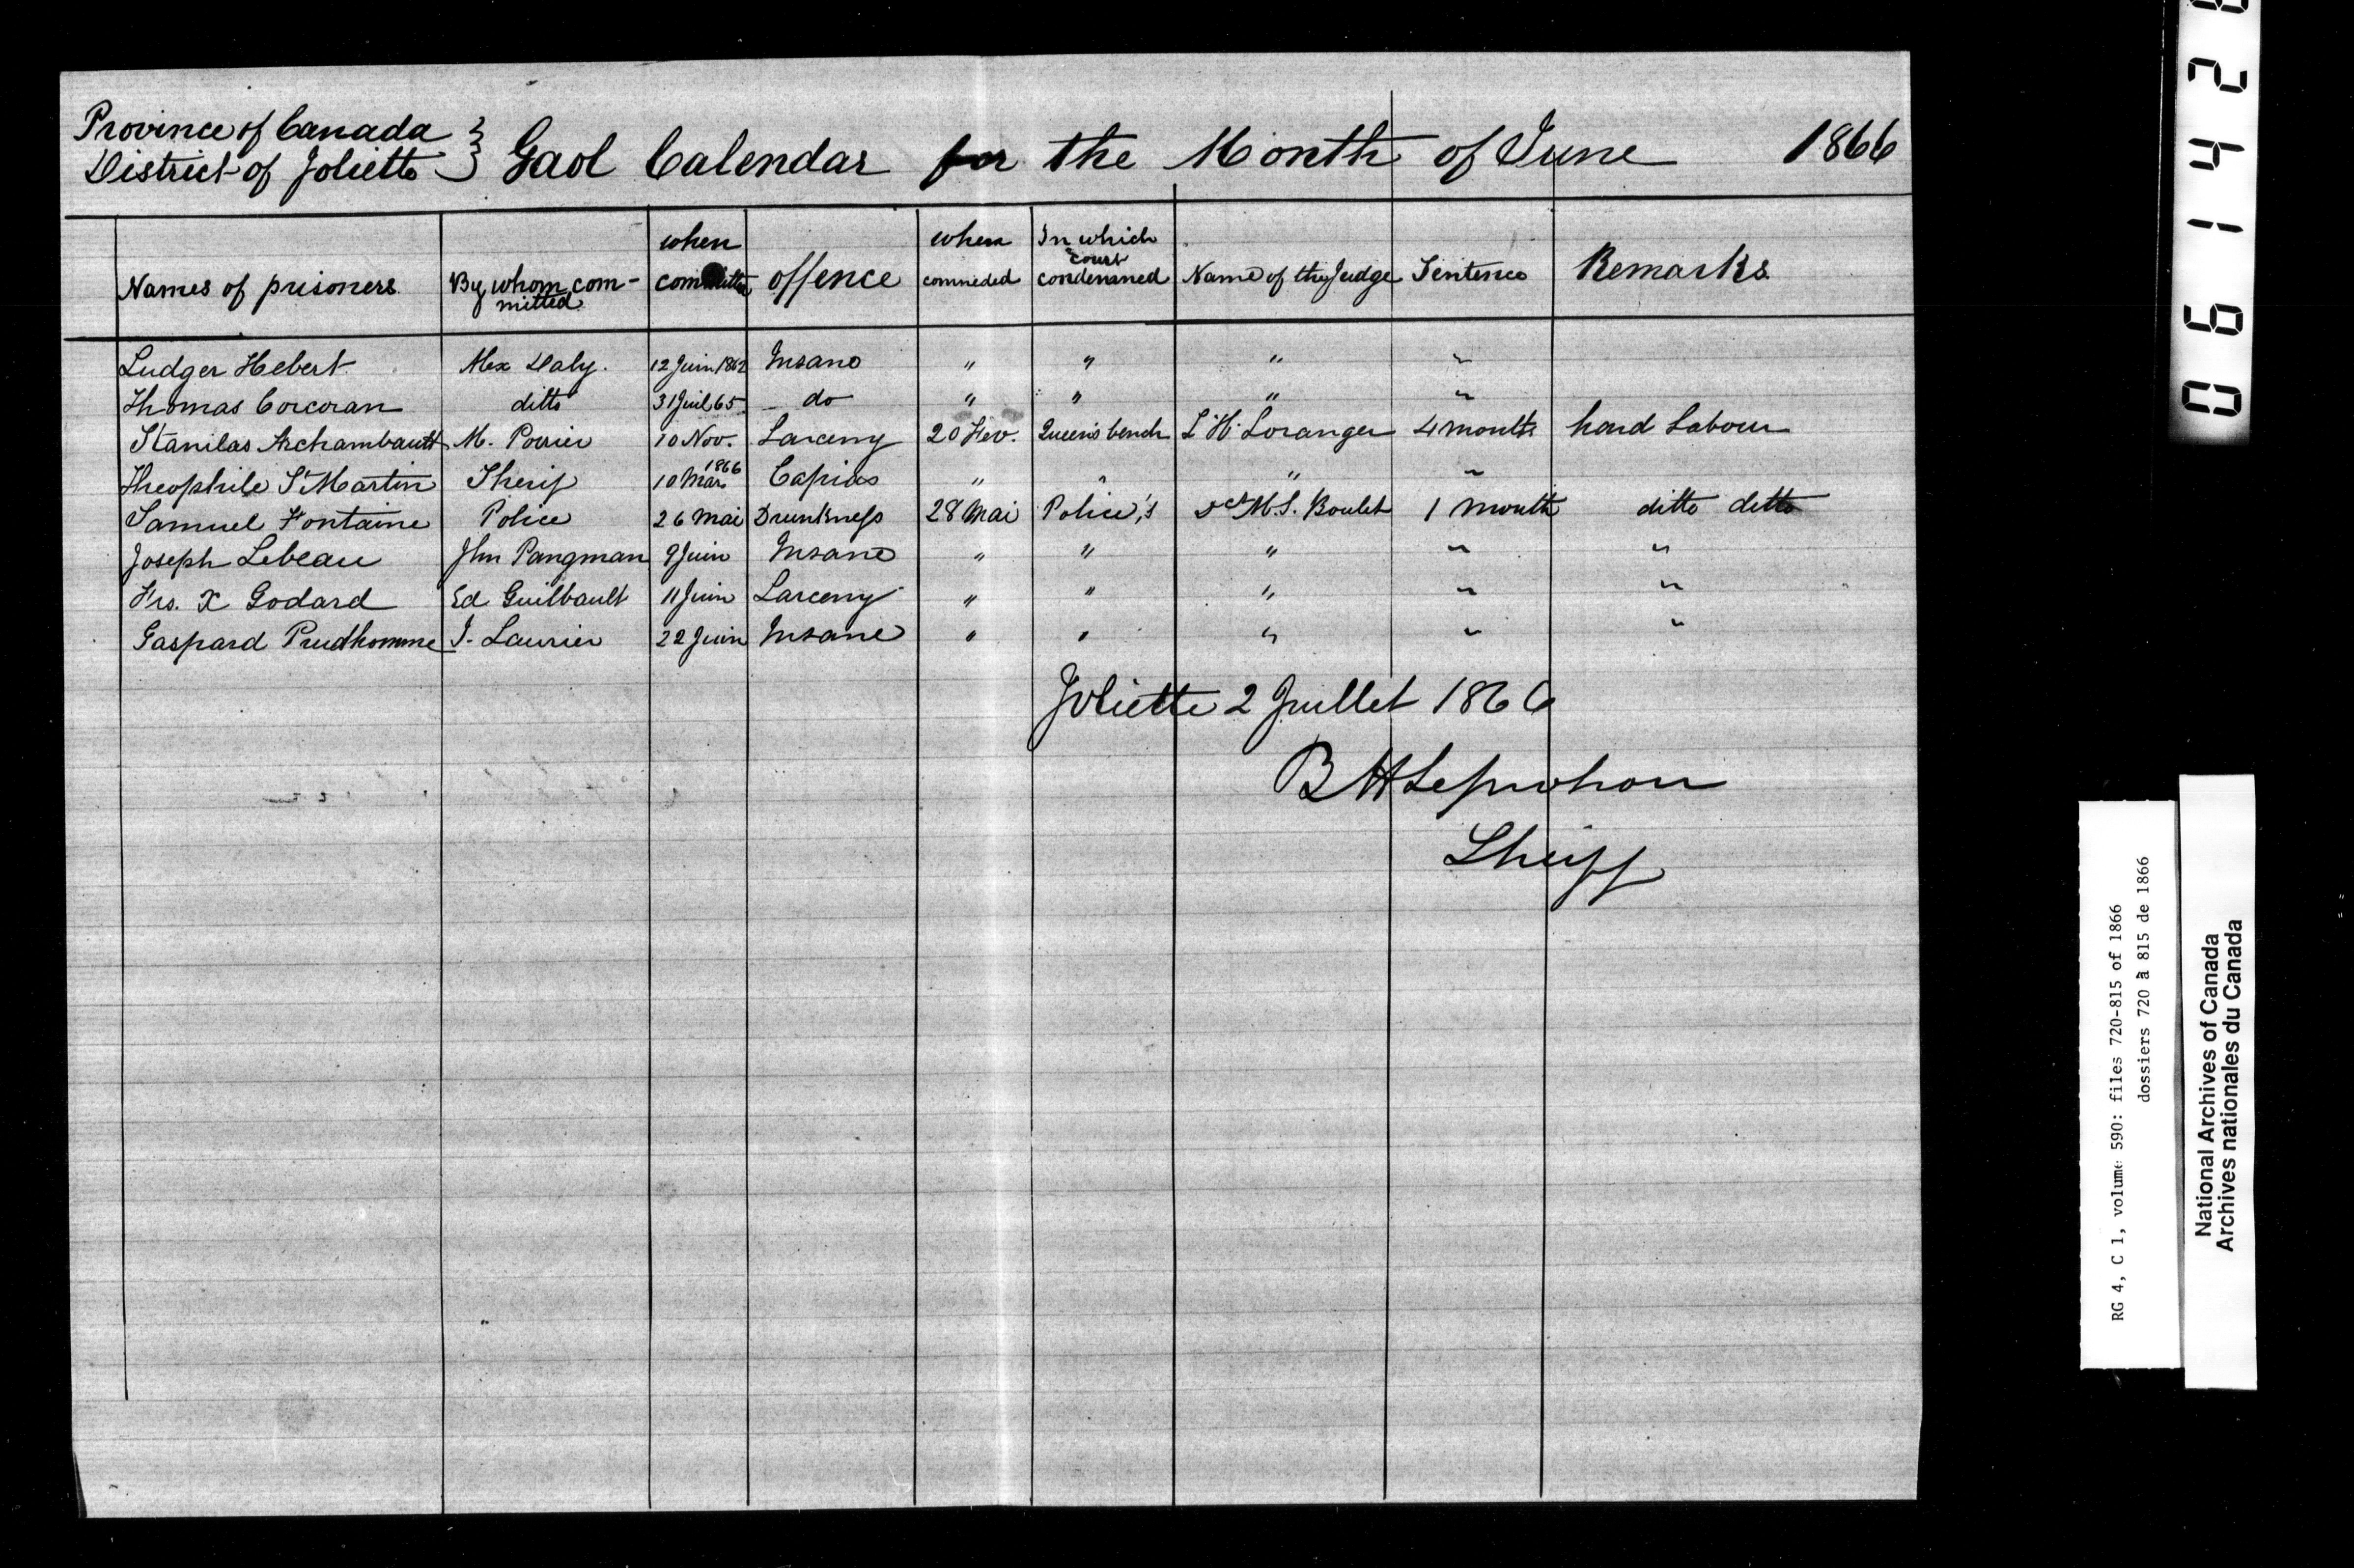 Province of Canada
District of Joliette } Gaol Calendar for the Month of June 1866
Names of prisoners By whom committed when committed offence when comneded In which court condemned Name of the Judge Sentence Remarks
Ludger Hebert Alex Daly. 12 Juin 1862 Insane " " " "
Thomas Corcoran ditto 31 Juil 65 do " " " "
Stanilas Archambault M. Poirier 10 Nov. Larceny 20 Fev. Queen's bench L H. Loranger 4 month hard Labour
Theophile St Martin Sherif 10 Mars 1866 Capias " " " "
Samuel Fontaine Police 26 Mai Drunkness 28 Mai Police's M.S. Boulet 1 month ditto ditto
Joseph Lebeau Jhn Pangman 9 Juin Insane " " " " "
Frs. X Godard Ed Guilbault 11 Juin Larceny " " " " "
Gaspard Prudhomme J. Laurier 22 Juin Insane " " " " "
Joliette 2 Juillet 1866
B H Leprohon
Sheriff
06142
RG 4, C 1, volume 590: files 720-815 of 1866
dossiers 720 à 815 de 1866
National Archives of Canada
Archives nationales du Canada